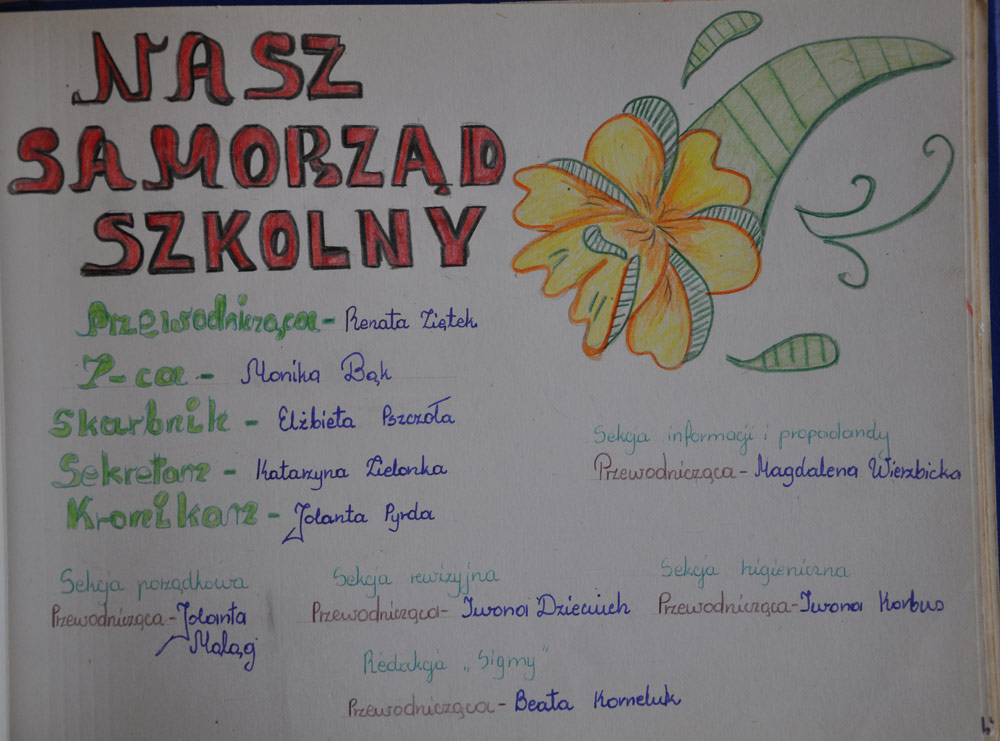 NASZ
SAMORZĄD
SZKOLNY
Przewodnicząca - Renata Ziętek
Z-ca - Monika Bąk
Skarbnik - Elżbieta Pszczoła
Sekretarz - Katarzyna Zielonka
Kronikarz - Jolanta Pyrda
Sekcja informacji i propadandy
Przewodnicząca - Magdalena Wierzbicka
Sekcja porządkowa
Przewodnicząca - Jolanta
Maląg
Sekcja rewizyjna
Przewodnicząca - Iwona Dzieciuch
Sekcja higieniczna
Przewodnicząca - Iwona Korbus
Redakcja „Sigmy"
Przewodnicząca - Beata Korneluk